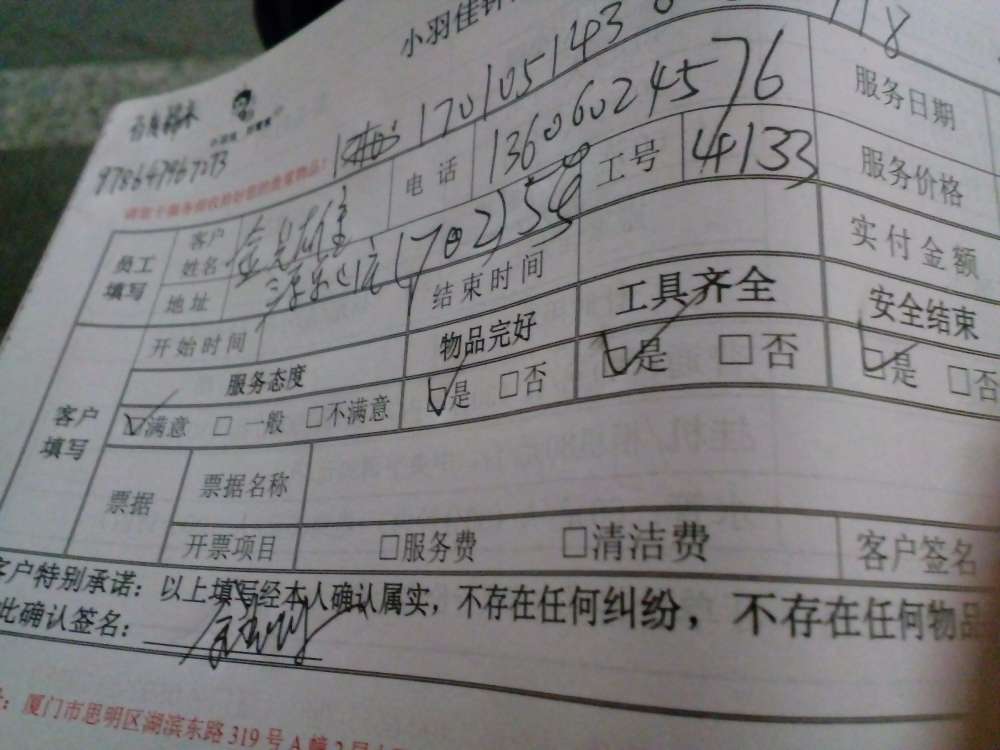 小羽佳钟
170105143
118
978647967273
请您于服务前收拾好您的贵重物品!
员工填写 客户姓名 电话 13606024576 服务日期
地址 1702)554 工号 4133 服务价格
开始时间 结束时间 实付金额
客户填写 服务态度 物品完好 工具齐全 安全结束
☑满意 □一般 □不满意 ☑是 □否 ☑是 □否 ☑是 □否
票据 票据名称
开票项目 □服务费 □清洁费 客户签名
客户特别承诺:以上填写经本人确认属实,不存在任何纠纷,不存在任何物品
此确认签名:
厦门市思明区湖滨东路319号A幢2层